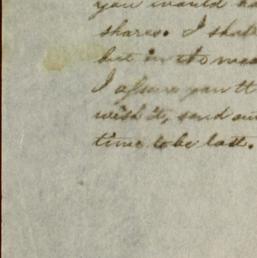 you would ha
shares. I shal
but in the mea
I assure you th
wish it, send
time to be lost.